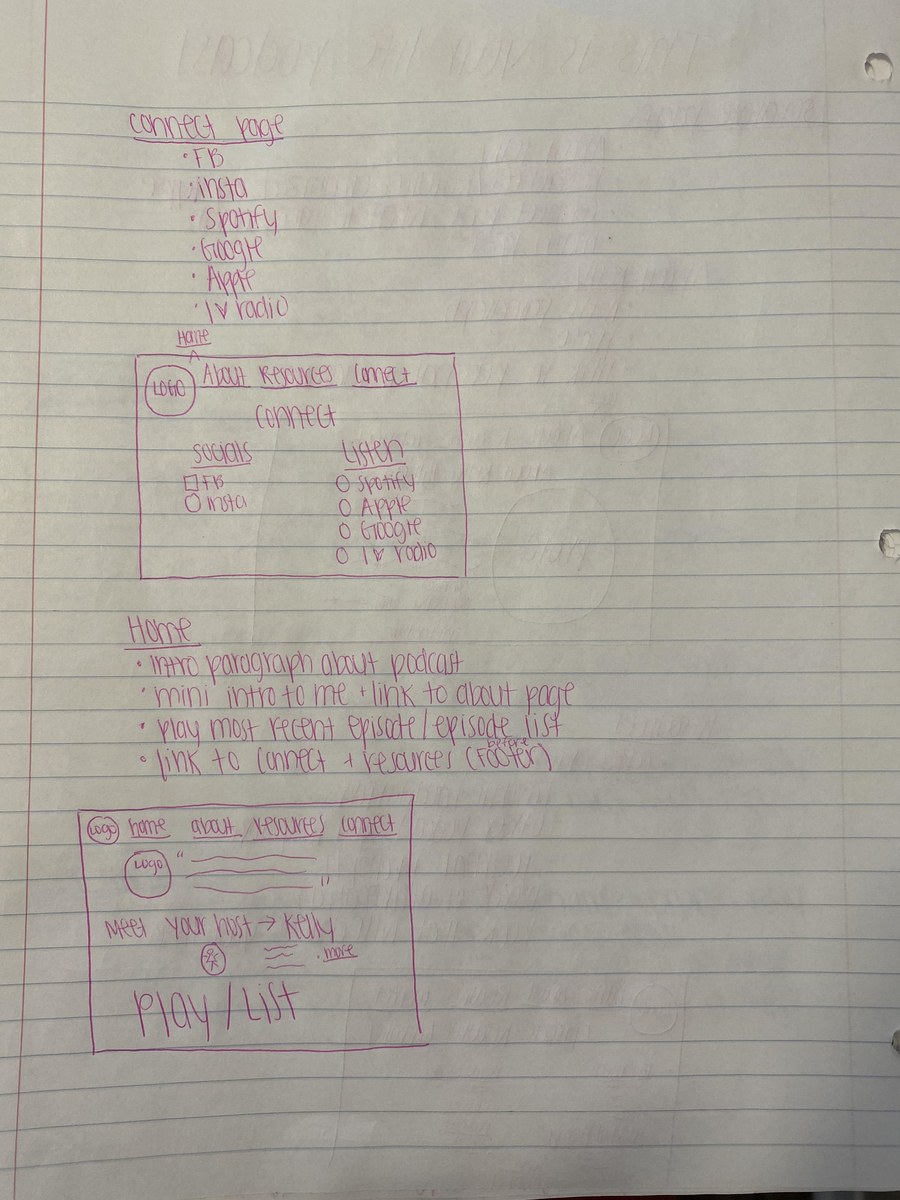 Connect page
• FB
• insta
• Spotify
• Google
• Apple
• I ♥ radio
Home
^
LOGO About Resources Connect
Connect
Socials Listen
FB Spotify
insta Apple
Google
I ♥ radio
Home
• intro paragraph about podcast
• mini intro to me + link to about page
• play most recent episode/episode list
before
• link to connect + resources (Footer)
Logo home about resources connect
Logo " "
Meet your host → Kelly
. more
Play/List